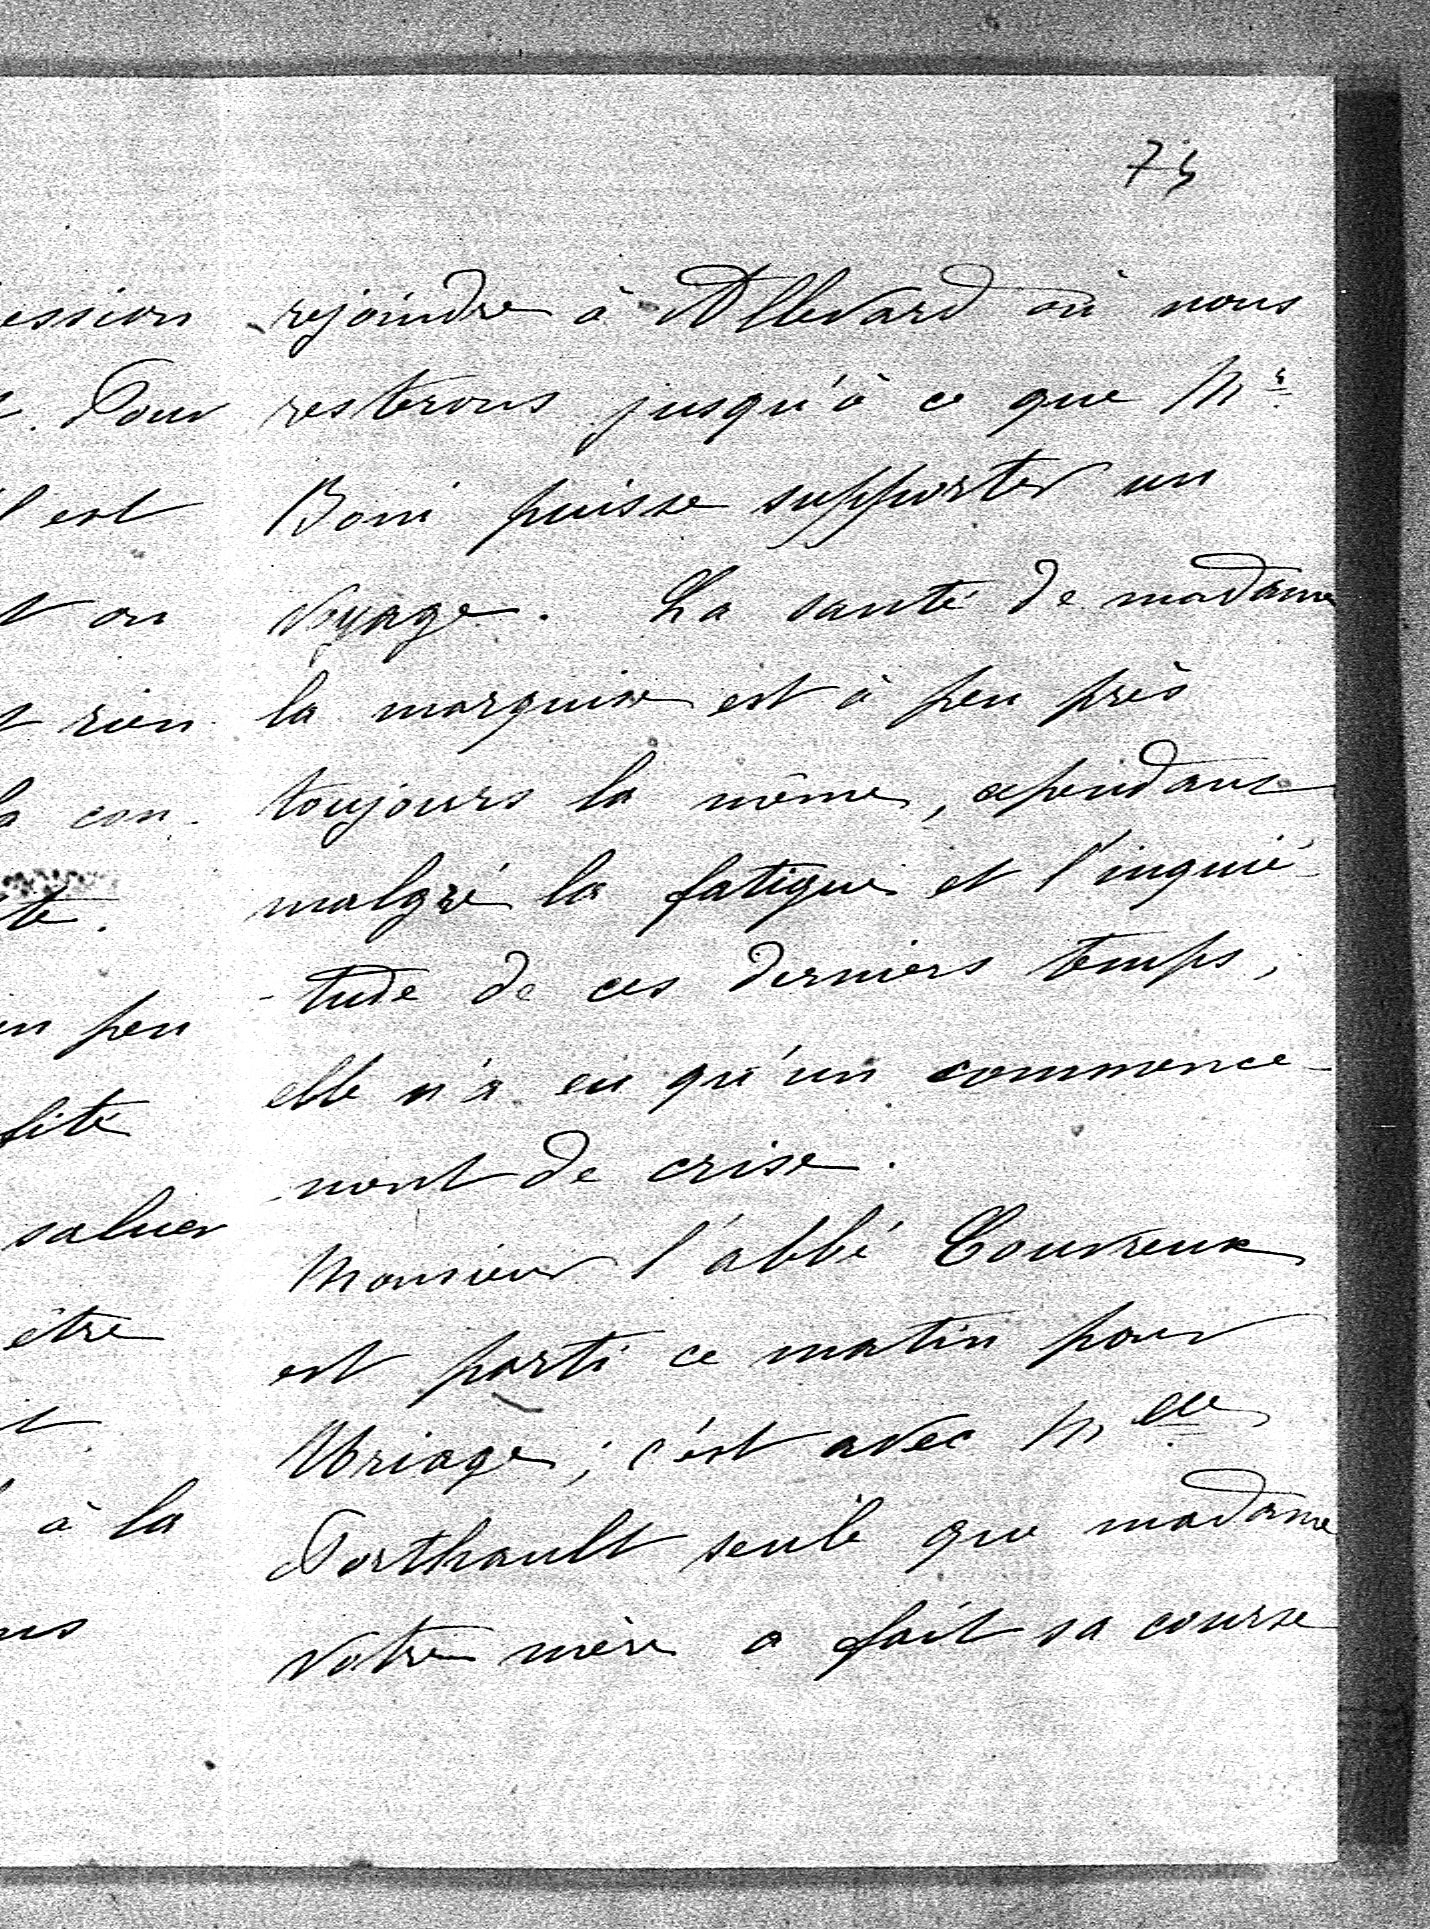 75
ession
. Pour
l'est
t on
t rien
la con-
ite.
un peu
fité
saluer
être
it
à la
ns
rejoindre à Allevard où nous
resterons jusqu'à ce que Mr
Boni puisse supporter un
voyage. La santé de madame
la marquise est à peu près
toujours la même, cependant
malgré la fatigue et l'inquié-
-tude de ces derniers temps,
elle n'a eu qu'un commence-
-ment de crise.
Monsieur l'abbé Couvreux
est parti ce matin pour
Uriage ; c'est avec Melle
Porthault seule que madame
votre mère a fait sa course